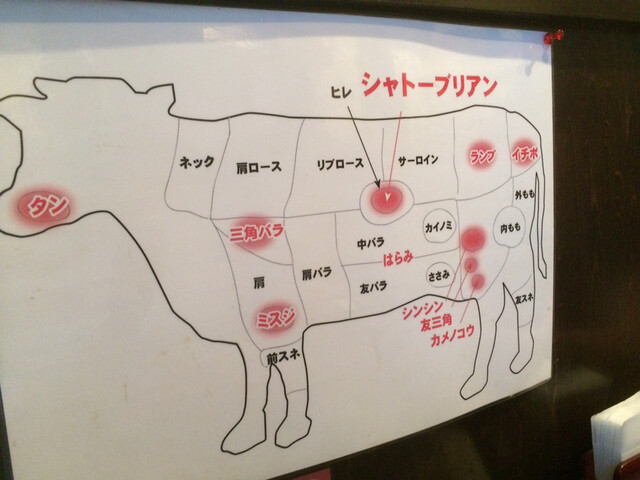 ヒレ
シャトーブリアン
ネック
肩ロース
リブロース
サーロイン
ランプ
イチボ
タン
三角バラ
中バラ
カイノミ
外もも
内もも
はらみ
肩
肩バラ
友バラ
ささみ
ミスジ
シンシン
友三角
カメノコウ
友スネ
前スネ